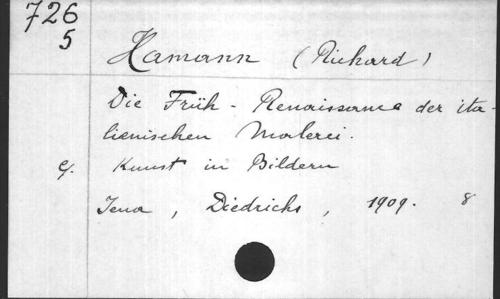 726
5
Hamann (Richard)
Die Früh - Renaissance der ita-
lienischen Malerei.
Kunst in Bildern
Jena, Diedrichs, 1909. 8